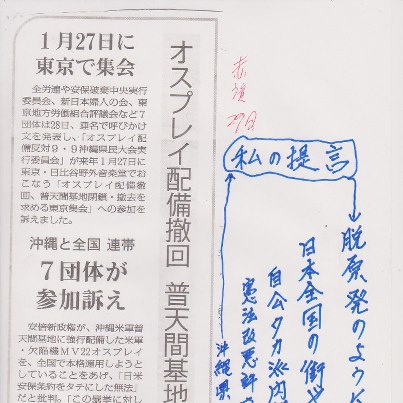 1月27日に
東京で集会
全労連や安保破棄中央実行
委員会、新日本婦人の会、東
京地方労働組合評議会など7
団体は28日、連名で呼びかけ
文を発表し、「オスプレイ配
備反対9・9沖縄県民大会実
行委員会」が来年1月27日に
東京・日比谷野外音楽堂でお
こなう「オスプレイ配備撤
回、普天間基地閉鎖・撤去を
求める東京集会」への参加を
訴えました。
沖縄と全国 連帯
7団体が
参加訴え
安倍新政権が、沖縄米軍普
天間基地に強行配備した米軍
・欠陥機MV22オスプレイ
を、全国で本格運用しようと
していることをあげ、「日米
安保条約をタテにした無法」
だと批判。「この暴挙に対し
オスプレイ配備撤回 普天間基地
赤旗
29日
私の提言
脱原発のように
日本全国の街や
自公タカ派内
憲法改悪
沖縄県